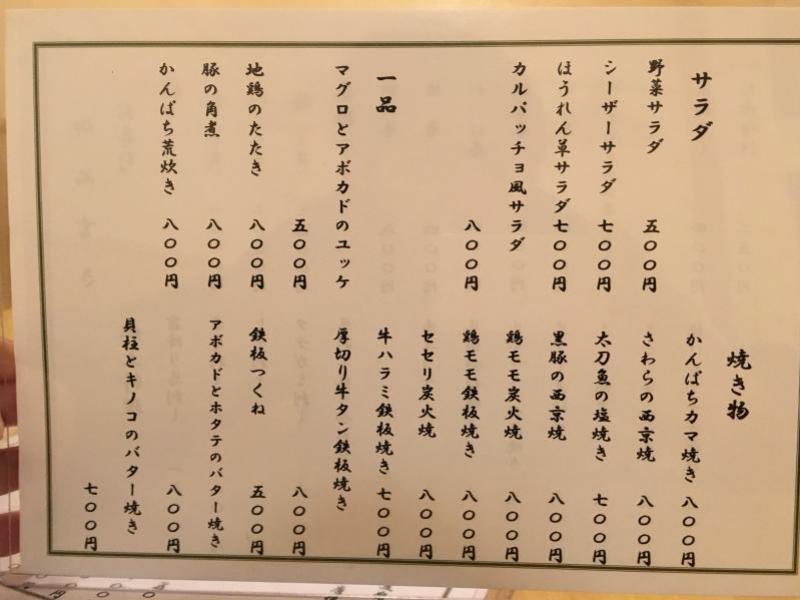 サラダ
野菜サラダ 五〇〇円
シーザーサラダ 七〇〇円
ほうれん草サラダ 七〇〇円
カルパッチョ風サラダ
八〇〇円
一品
マグロとアボカドのユッケ
五〇〇円
地鶏のたたき 八〇〇円
豚の角煮 八〇〇円
かんぱち荒炊き 八〇〇円
焼き物
かんぱちカマ焼き 八〇〇円
さわらの西京焼 八〇〇円
太刀魚の塩焼き 七〇〇円
黒豚の西京焼 八〇〇円
鶏モモ炭火焼 八〇〇円
鶏モモ鉄板焼き 八〇〇円
セセリ炭火焼 八〇〇円
牛ハラミ鉄板焼き 七〇〇円
厚切り牛タン鉄板焼き
八〇〇円
鉄板つくね 五〇〇円
アボカドとホタテのバター焼き
八〇〇円
貝柱とキノコのバター焼き
七〇〇円